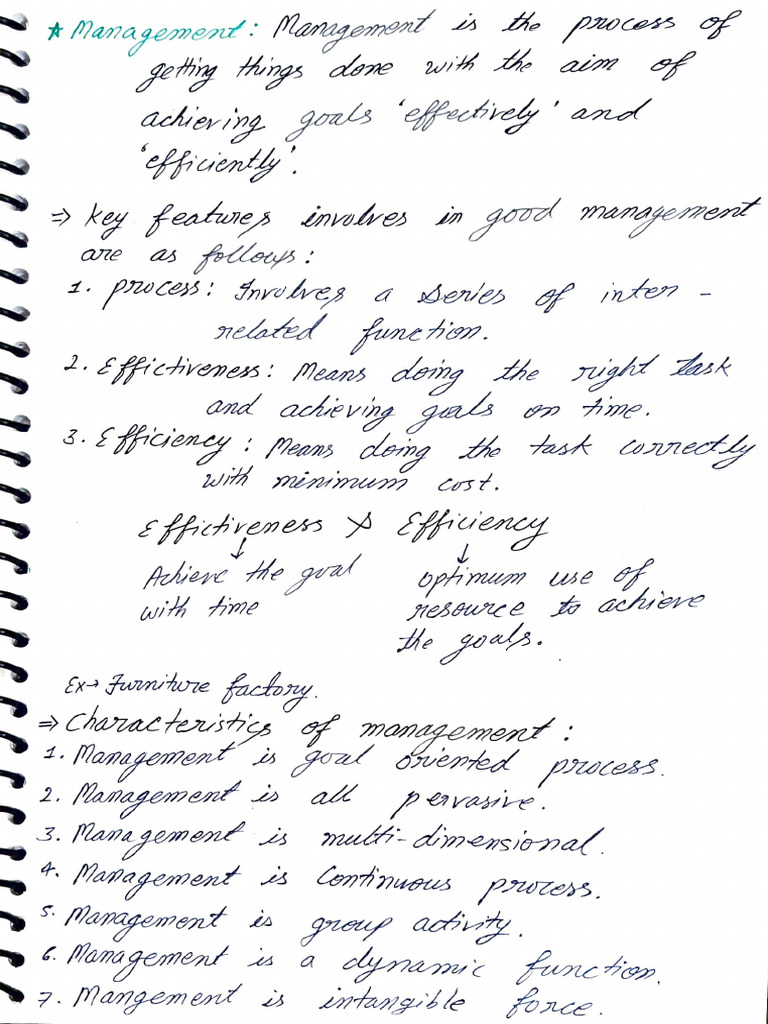 * Management: Management is the process of
getting things done with the aim of
achieving goals 'effectively' and
'efficiently'.
⇒ Key features involves in good management
are as follows:
1. process: Involves a series of inter-
related function.
2. Effictiveness: Means doing the right task
and achieving goals on time.
3. Efficiency: Means doing the task correctly
with minimum cost.
Effictiveness Efficiency
↓ ↓
Achieve the goal optimum use of
with time resource to achieve
the goals.
Ex→ Furniture factory.
⇒ Characteristics of management:
1. Management is goal oriented process.
2. Management is all pervasive.
3. Management is multi-dimensional.
4. Management is Continuous process.
5. Management is group activity.
6. Management is a dynamic function.
7. Mangement is intangible force.